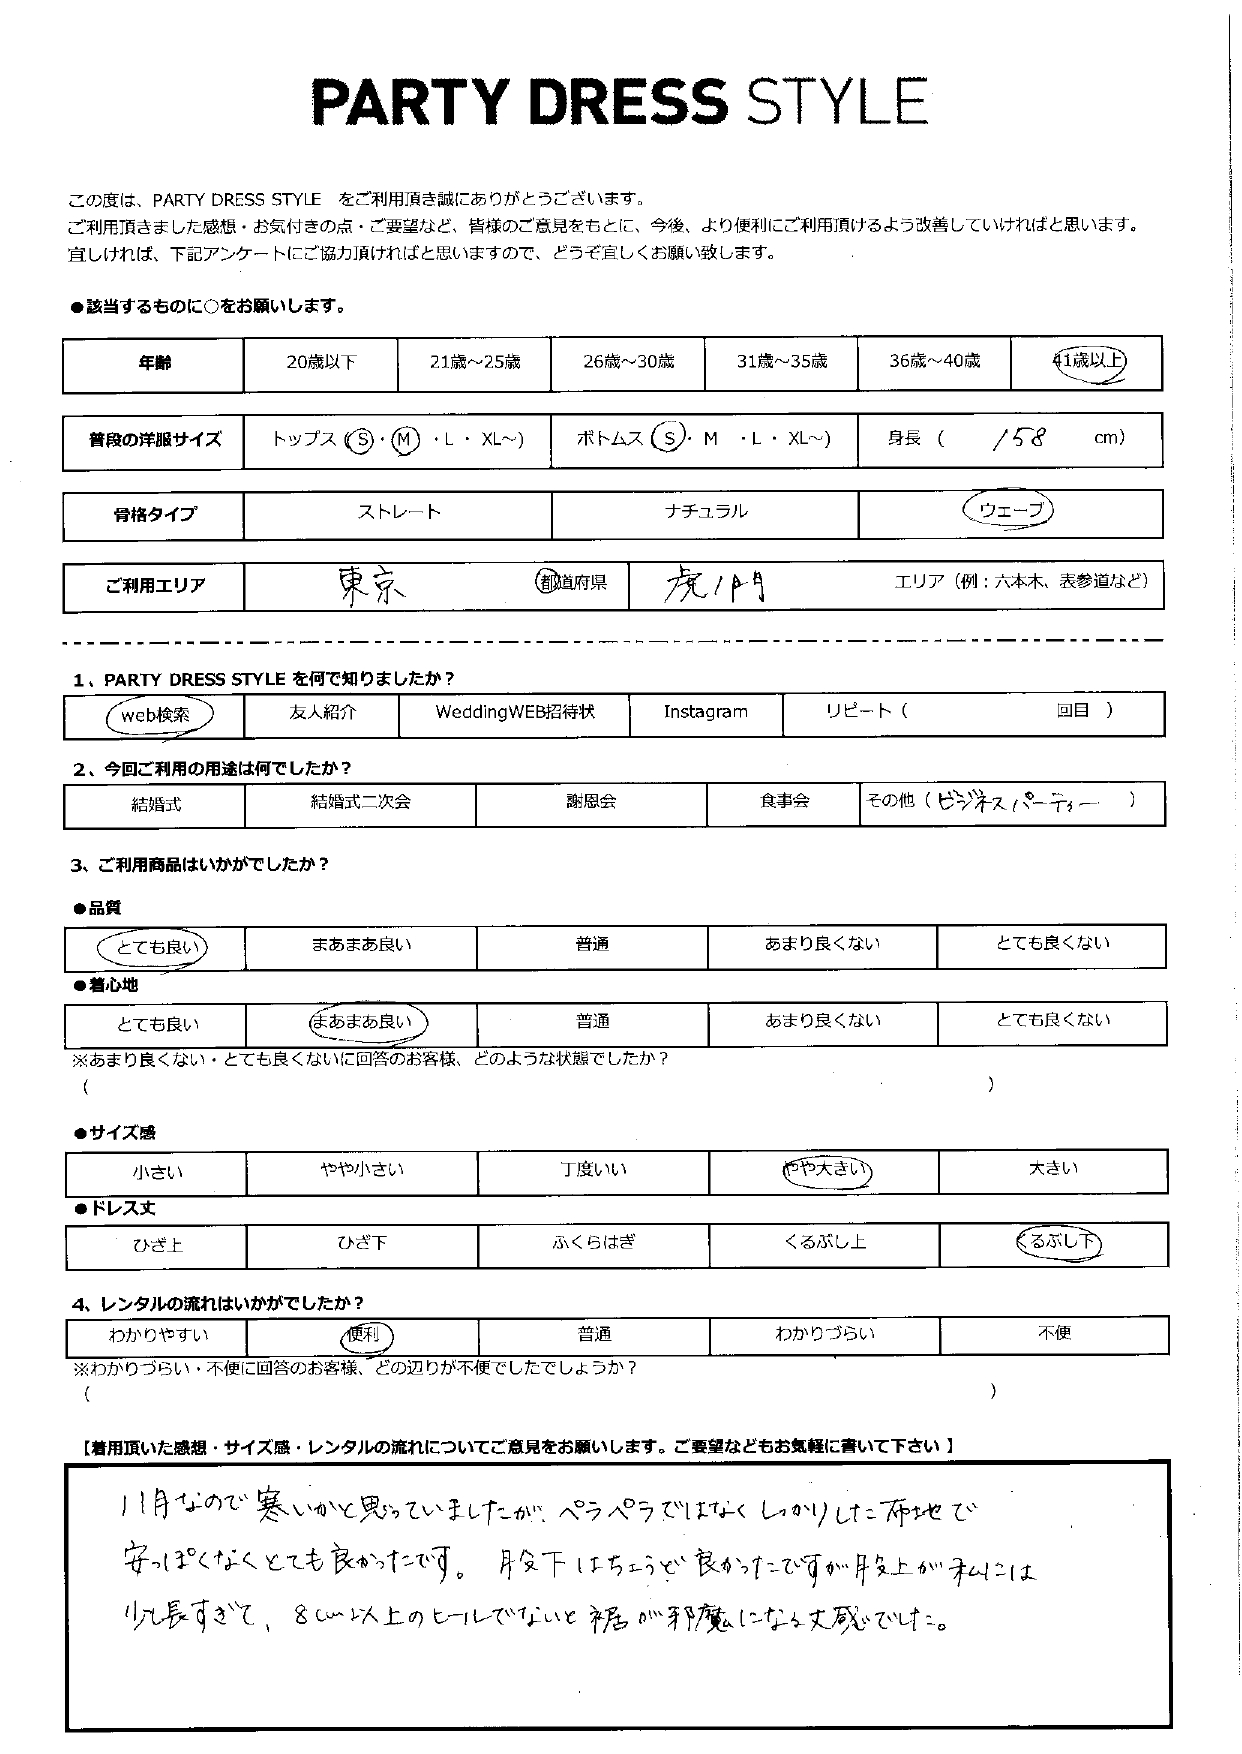 PARTY DRESS STYLE
この度は、PARTY DRESS STYLE をご利用頂き誠にありがとうございます。
ご利用頂きました感想・お気付きの点・ご要望など、皆様のご意見をもとに、今後、より便利にご利用頂けるよう改善していければと思います。
宜しければ、下記アンケートにご協力頂ければと思いますので、どうぞ宜しくお願い致します。
●該当するものに○をお願いします。
年齢 20歳以下 21歳～25歳 26歳～30歳 31歳～35歳 36歳～40歳 41歳以上
普段の洋服サイズ トップス (S・M ・L ・ XL～) ボトムス (S・ M ・L ・ XL～) 身長 ( 158 cm)
骨格タイプ ストレート ナチュラル ウェーブ
ご利用エリア 東京 都道府県 虎ノ門 エリア（例：六本木、表参道など）
1、PARTY DRESS STYLE を何で知りましたか？
web検索 友人紹介 WeddingWEB招待状 Instagram リピート ( 回目 )
2、今回ご利用の用途は何でしたか？
結婚式 結婚式二次会 謝恩会 食事会 その他 ( ビジネスパーティー )
3、ご利用商品はいかがでしたか？
●品質
とても良い まあまあ良い 普通 あまり良くない とても良くない
●着心地
とても良い まあまあ良い 普通 あまり良くない とても良くない
※あまり良くない・とても良くないに回答のお客様、どのような状態でしたか？
( )
●サイズ感
小さい やや小さい 丁度いい やや大きい 大きい
●ドレス丈
ひざ上 ひざ下 ふくらはぎ くるぶし上 くるぶし下
4、レンタルの流れはいかがでしたか？
わかりやすい 便利 普通 わかりづらい 不便
※わかりづらい・不便に回答のお客様、どの辺りが不便でしたでしょうか？
( )
【着用頂いた感想・サイズ感・レンタルの流れについてご意見をお願いします。ご要望などもお気軽に書いて下さい】
11月なので寒いかと思っていましたが、ペラペラではなくしっかりした布地で
安っぽくなくとても良かったです。 股下はちょうど良かったですが股上が私には
少し長すぎて、8cm以上のヒールでないと裾が邪魔になる丈感でした。